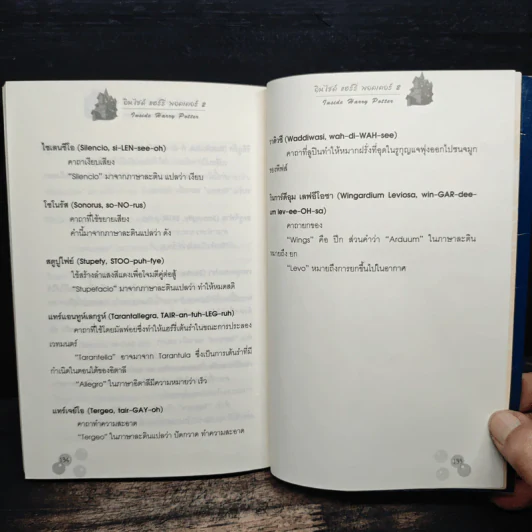 อินไซด์ แฮร์รี่ พอตเตอร์ 2
Inside Harry Potter
ไซเลนซีโอ (Silencio, si-LEN-see-oh)
คาถาเงียบเสียง
"Silencio" มาจากภาษาละติน แปลว่า เงียบ
โซโนรัส (Sonorus, so-NO-rus)
คาถาที่ใช้ขยายเสียง
คำนี้มาจากภาษาละตินแปลว่า ดัง
สตูปีไฟย์ (Stupefy, STOO-puh-fye)
ใช้สร้างลำแสงสีแดงเพื่อโจมตีคู่ต่อสู้
"Stupefacio" มาจากภาษาละตินแปลว่า ทำให้หมดสติ
แทร์แอนทูห์เลกรูห์ (Tarantallegra, TAIR-an-tuh-LEG-ruh)
คาถาที่ใช้โดยมัลฟอยซึ่งทำให้แฮร์รี่เต้นรำในขณะการประลอง
เวทมนตร์
"Tarantella" อาจมาจาก Tarantula ซึ่งเป็นการเต้นรำที่มี
กำเนิดในตอนใต้ของอิตาลี
"Allegro" ในภาษาอิตาลีมีความหมายว่า เร็ว
แทร์เจย์โอ (Tergeo, tair-GAY-oh)
คาถาทำความสะอาด
"Tergeo" ในภาษาละตินแปลว่า ปัดกวาด ทำความสะอาด
อินไซด์ แฮร์รี่ พอตเตอร์ 2
Inside Harry Potter
วาดิวาซี (Waddiwasi, wah-di-WAH-see)
คาถาที่ลูปินทำให้หมากฝรั่งที่อุดในรูกุญแจพุ่งออกไปชนจมูก
ของพีฟส์
วินการ์ดีอุม เลฟอีโอซา (Wingardium Leviosa, win-GAR-dee-
um lev-ee-OH-sa)
คาถายกของ
"Wings" คือ ปีก ส่วนคำว่า "Arduum" ในภาษาละติน
หมายถึง ยก
"Levo" หมายถึงการยกขึ้นไปในอากาศ